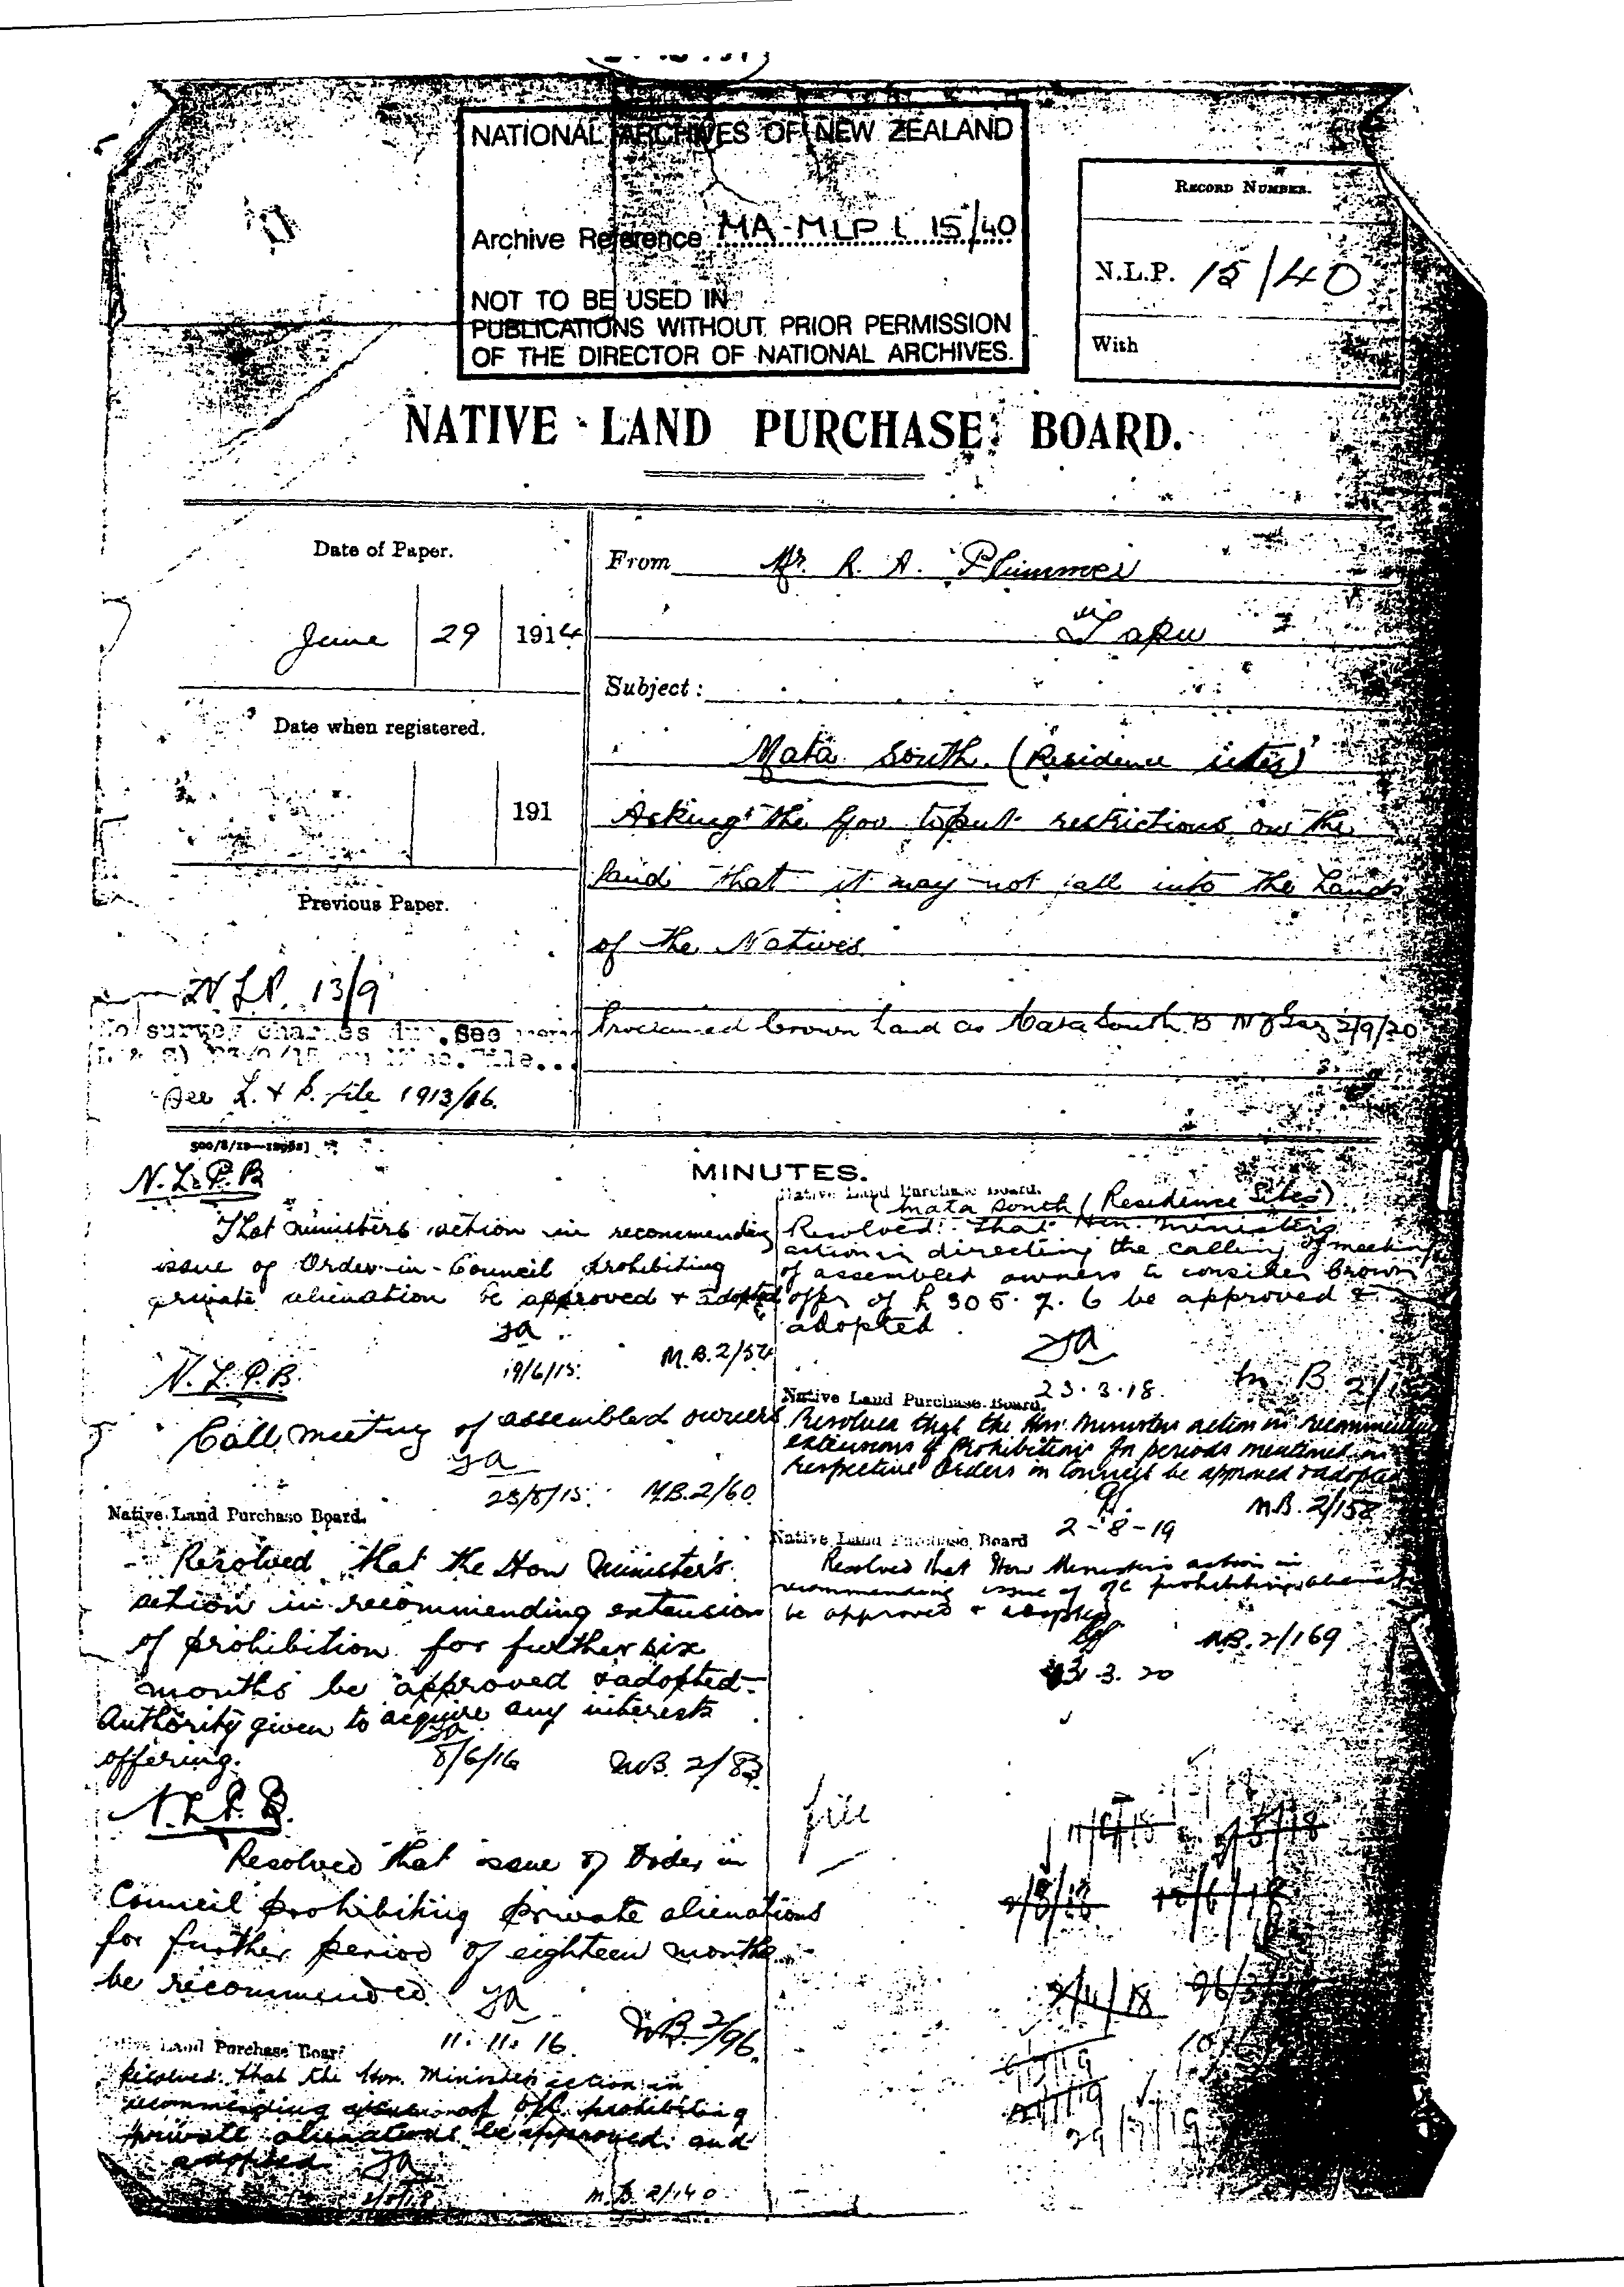 NATIONAL ARCHIVES OF NEW ZEALAND
Archive Reference MA-MLP 1 15/40
NOT TO BE USED IN
PUBLICATIONS WITHOUT PRIOR PERMISSION
OF THE DIRECTOR OF NATIONAL ARCHIVES.
RECORD NUMBER.
N.L.P. 15/40
With
NATIVE LAND PURCHASE BOARD.
Date of Paper.
June 29 1914
Date when registered.
191
Previous Paper.
N.L.P. 13/9
No survey charges due. See
See L. & S. file 1913/16.
From Mr. R. A. Plummer
Tapu
Subject:
Mata South. (Residence sites)
Asking the Gov to put restrictions on the
land that it may not fall into the hands
of the Natives
Proclaimed Crown Land as Mata South B NZ Gaz 2/9/20
MINUTES.
N.L.P.B
That ministers action in recommending
issue of Order-in-Council prohibiting
private alienation be approved & adopted
19/6/15. M.B. 2/54
N.L.P.B.
Call meeting of assembled owners
23/8/15. M.B. 2/60
Native Land Purchase Board.
Resolved that the Hon Minister's
action in recommending extension
of prohibition for further six
months be approved & adopted.
Authority given to acquire any interests
offering.
8/6/16 M.B. 2/83
N.L.P.B.
Resolved that issue of Order in
Council prohibiting private alienations
for further period of eighteen months
be recommended.
11.11.16. M.B. 2/96.
Native Land Purchase Board
Resolved: that the Hon. Ministers action in
recommending of O/C prohibiting
private alienations be approved and
adopted.
M.B. 2/140
Native Land Purchase Board.
Mata South (Residence Sites)
Resolved: That Hon. Ministers
action in directing the calling of meeting
of assembled owners to consider Crown
offer of £305.7.6 be approved &
adopted.
23.3.18. M.B. 2/1
Native Land Purchase Board.
Resolved that the Hon. Ministers action in recommending
extensions of Prohibitions for periods mentioned in
respective Orders in Council be approved & adopted
2-8-19 M.B. 2/158
Native Land Purchase Board
Resolved that Hon Ministers action in
recommending issue of O/C prohibiting alienation
be approved & adopted
3.20 M.B. 2/169
file